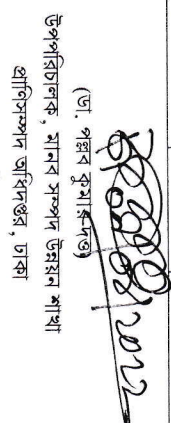 (ডা. পল্লব কুমার দত্ত)
উপপরিচালক, মানব সম্পদ উন্নয়ন শাখা
প্রাণিসম্পদ অধিদপ্তর, ঢাকা